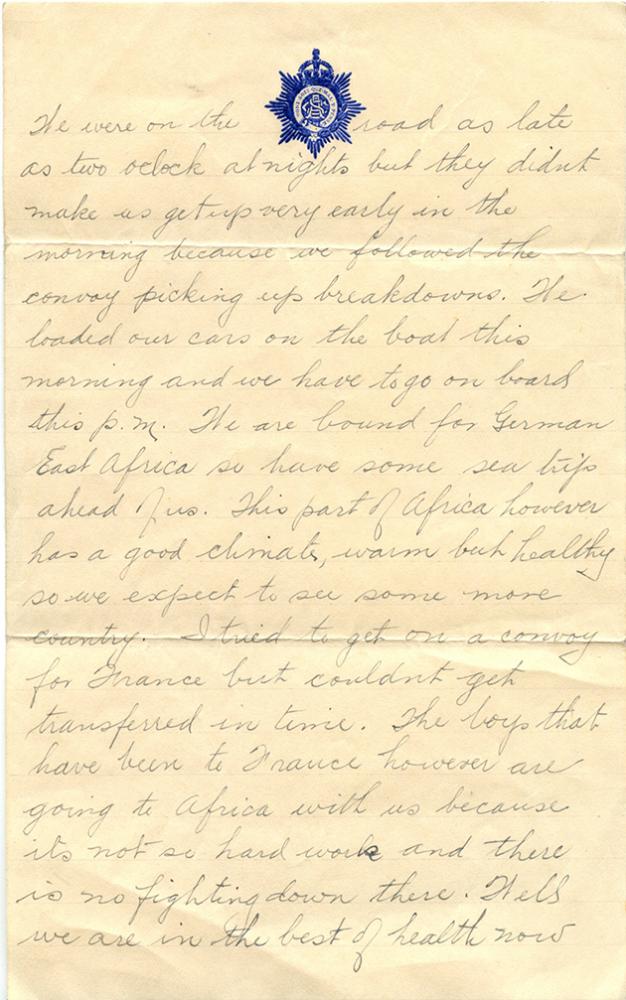 We were on the road as late
as two oclock at nights but they didnt
make us get up very early in the
morning because we followed the
convoy picking up breakdowns. We
loaded our cars on the boat this
morning and we have to go on board
this p.m. We are bound for German
East Africa so have some sea trip
ahead of us. This part of Africa however
has a good climate, warm but healthy
so we expect to see some more
country. I tried to get on a convoy
for France but couldnt get
transferred in time. The boys that
have been to France however are
going to Africa with us because
its not so hard work and there
is no fighting down there. Well
we are in the best of health now